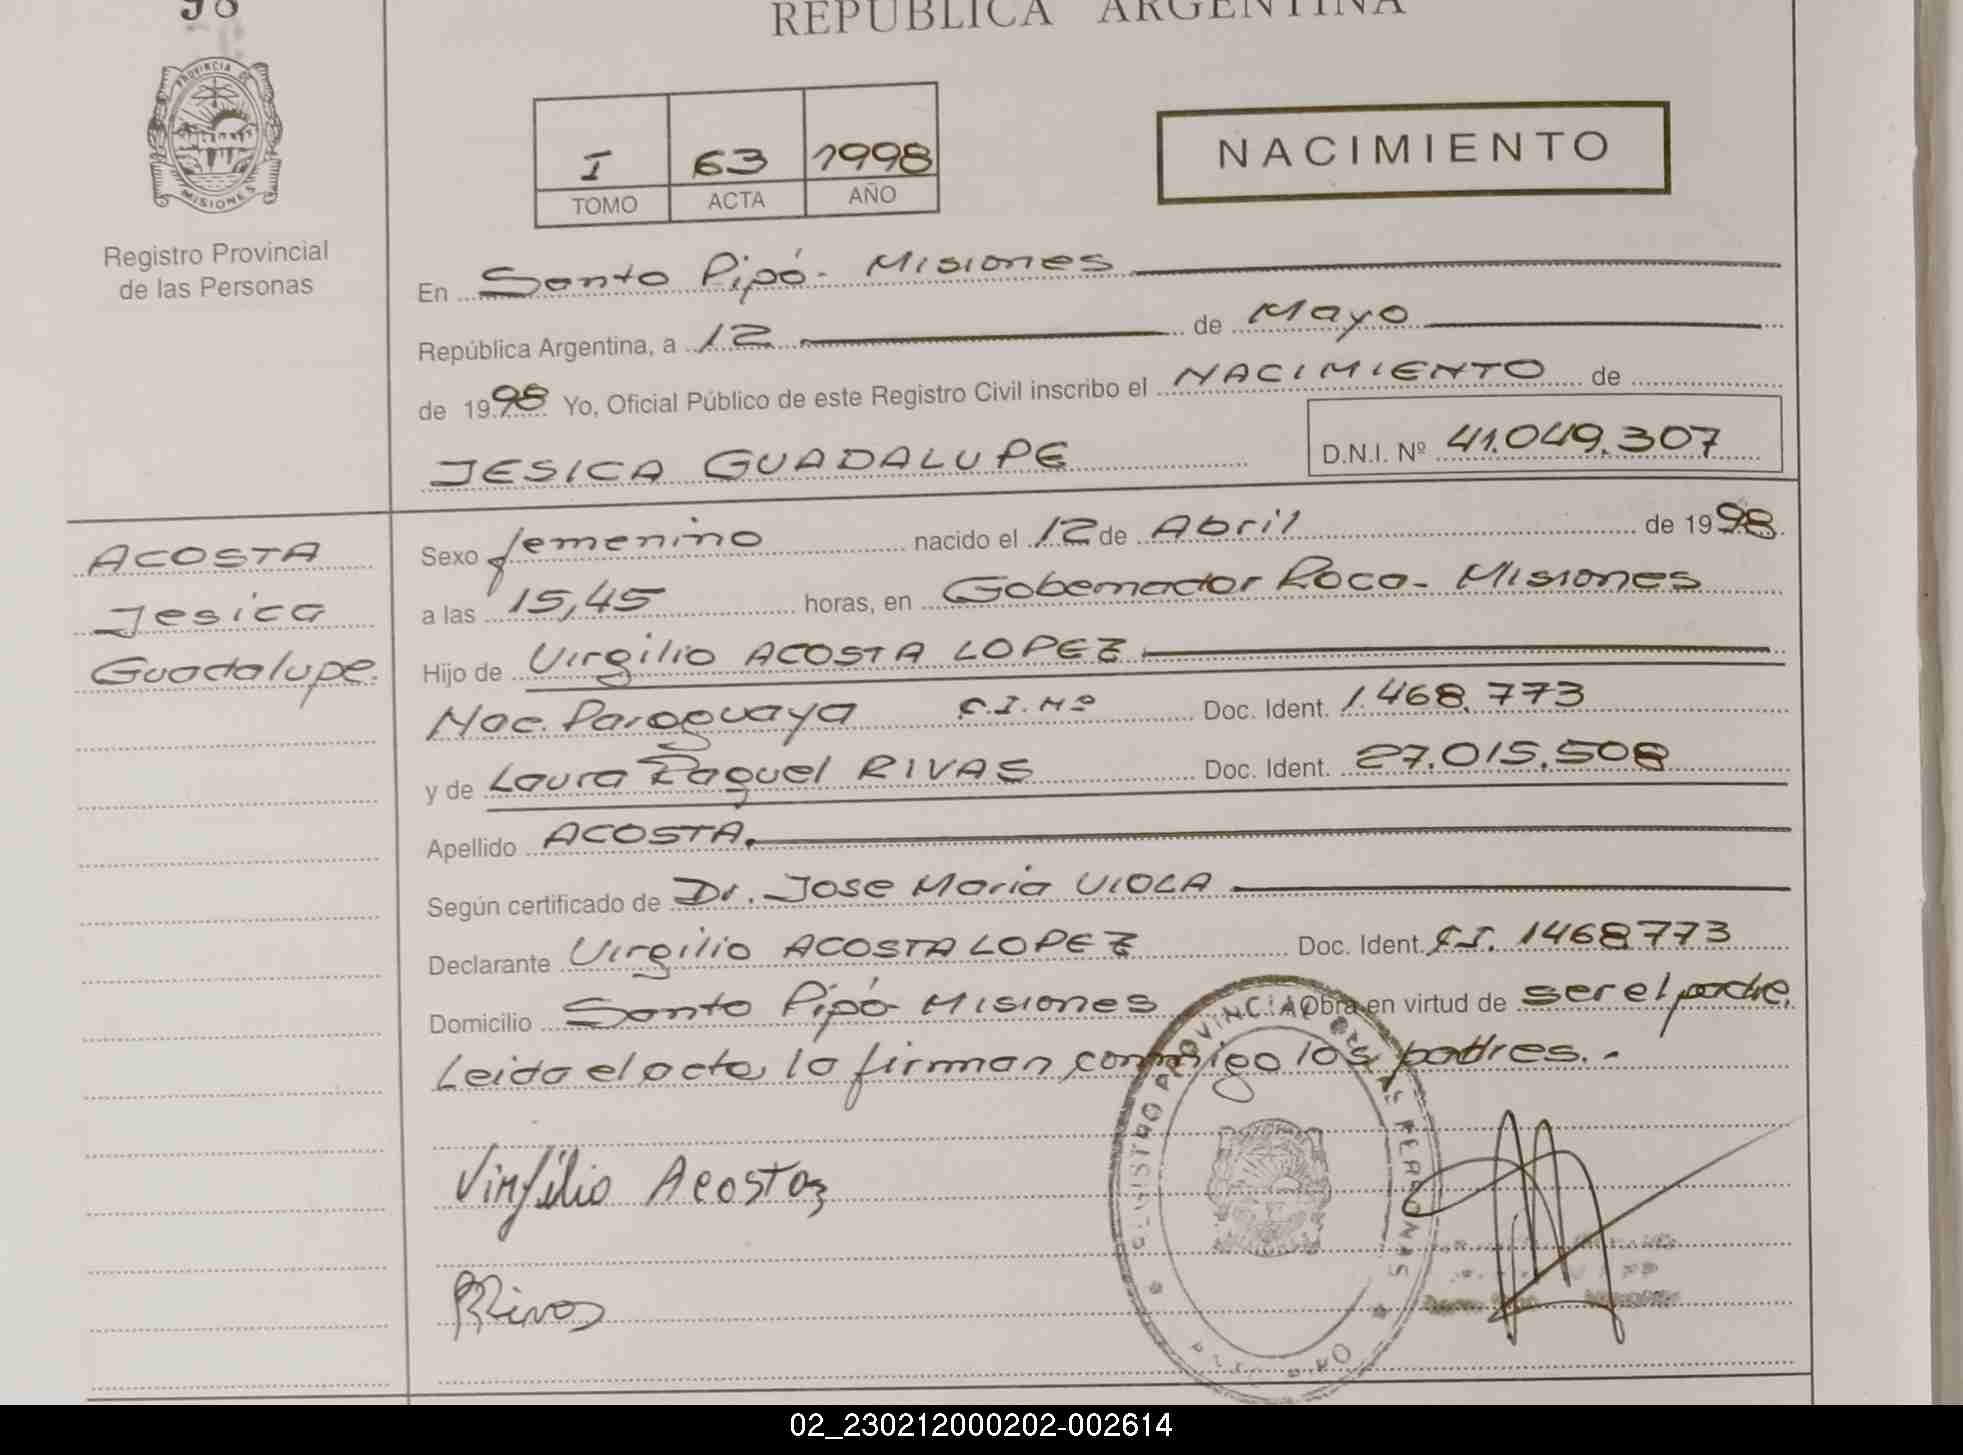 98
REPUBLICA ARGENTINA
PROVINCIA DE MISIONES
Registro Provincial
de las Personas
I 63 1998
TOMO ACTA AÑO
NACIMIENTO
En Santo Pipó - Misiones
República Argentina, a 12 de Mayo
de 1998 Yo, Oficial Público de este Registro Civil inscribo el NACIMIENTO de
JESICA GUADALUPE D.N.I. Nº 41.049.307
ACOSTA
Jesica
Guadalupe.
Sexo femenino nacido el 12 de Abril de 1998
a las 15,45 horas, en Gobernador Roca - Misiones
Hijo de Virgilio ACOSTA LOPEZ
Nac. Paraguaya C.I. Nº Doc. Ident. 1.468.773
y de Laura Raquel RIVAS Doc. Ident. 27.015.508
Apellido ACOSTA.
Según certificado de Dr. Jose Maria VIOLA
Declarante Virgilio ACOSTA LOPEZ Doc. Ident. C.I. 1468773
Domicilio Santo Pipó - Misiones Obra en virtud de ser el padre.
Leida el acta la firman conmigo los padres. -
REGISTRO PROVINCIAL DE LAS PERSONAS
Virgilio Acosta
Rivas
02_230212000202-002614